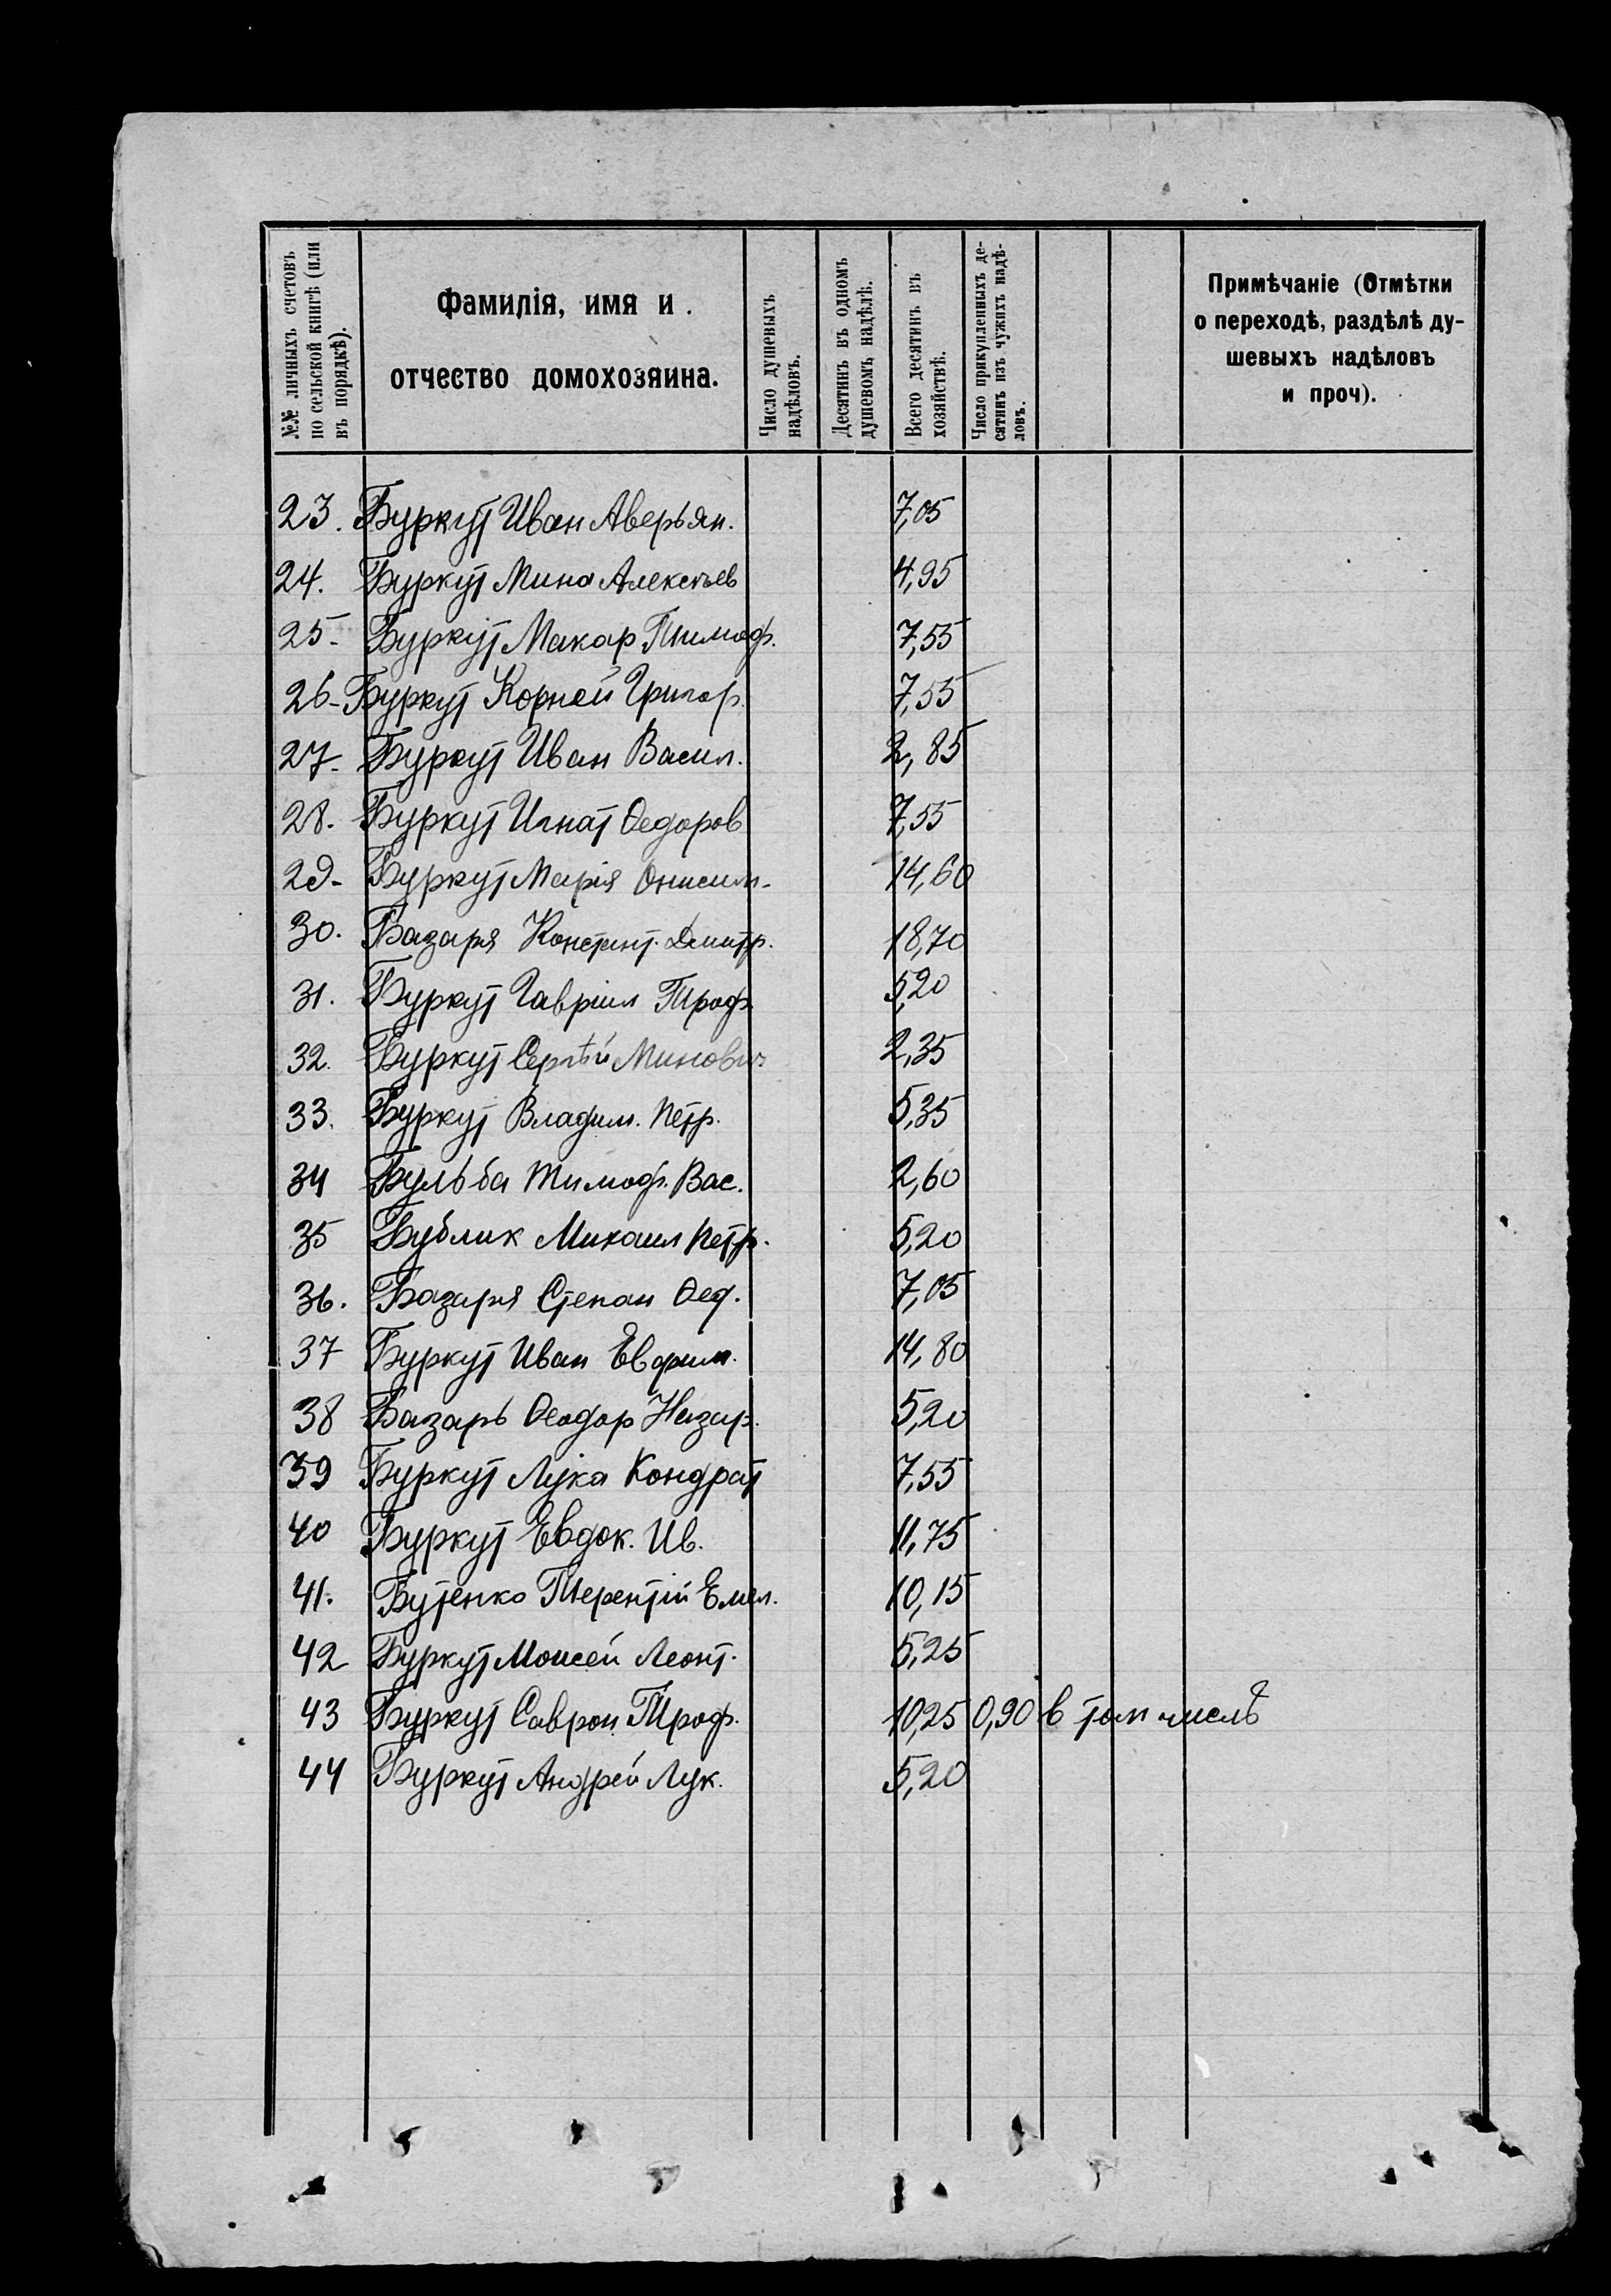 №№ личныхъ счетовъ
по сельской книгѣ (или
въ порядкѣ).
Фамилія, имя и
отчество домохозяина.
Число душевыхъ
надѣловъ.
Десятинъ въ одномъ
душевомъ надѣлѣ.
Всего десятинъ въ
хозяйствѣ.
Число прикупленныхъ де-
сятинъ изъ чужихъ надѣ-
ловъ.
Примѣчаніе (Отмѣтки
о переходѣ, раздѣлѣ ду-
шевыхъ надѣловъ
и проч).
23. Буркут Иван Аверьян. 7,05
24. Буркут Мина Алексѣев 4,95
25- Буркут Макар Тимоф. 7,55
26- Буркут Корней Григор. 7,55
27- Буркут Иван Васил. 2,85
28. Буркут Игнат Ѳедоров 7,55
29- Буркут Марія Онисим. 14,60
30. Базаря Констант. Дмитр. 18,70
31. Буркут Гавріил Троф. 5,20
32. Буркут Сергѣй Минович 2,35
33. Буркут Владим. Петр. 5,35
34 Бульба Тимоф. Вас. 2,60
35 Бублик Михаил Петр. 5,20
36. Базаря Степан Ѳед. 7,05
37 Буркут Иван Евфим. 14,80
38 Базарь Ѳеодор Назар. 5,20
39 Буркут Лука Кондрат 7,55
40 Буркут Евдок. Ив. 11,75
41. Бутенко Терентій Емел. 10,15
42 Буркут Моисей Леонт. 5,25
43 Буркут Саврон Троф. 10,25 0,90 в том числѣ
44 Буркут Андрей Лук. 5,20